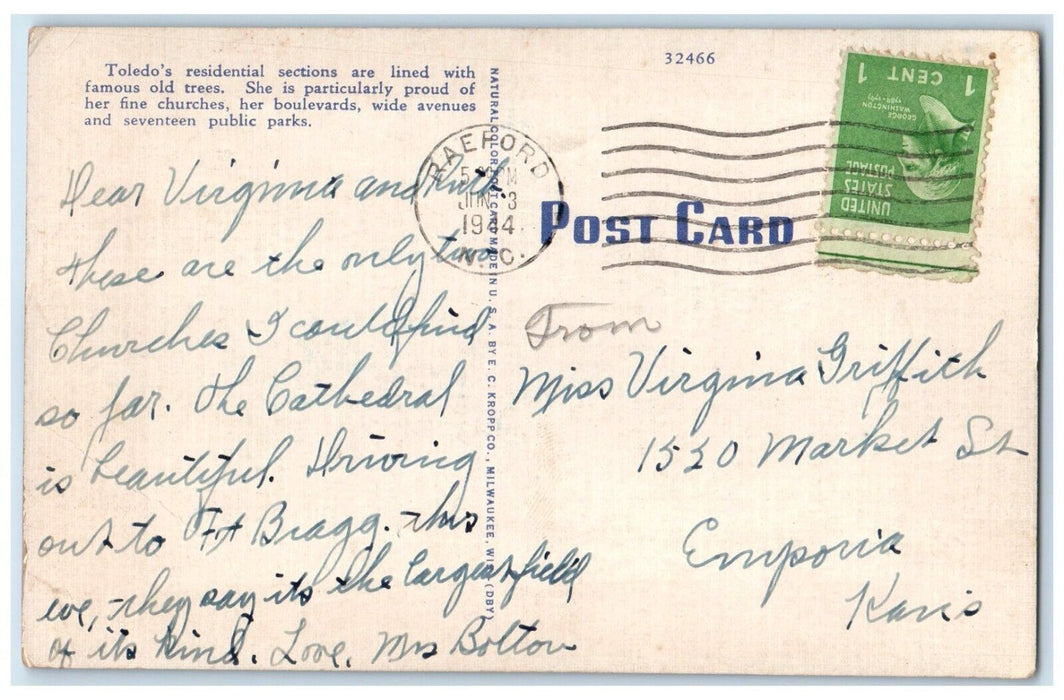 Toledo's residential sections are lined with
famous old trees. She is particularly proud of
her fine churches, her boulevards, wide avenues
and seventeen public parks.
32466
NATURAL COLOR POST CARD MADE IN U. S. A. BY E. C. KROPP CO., MILWAUKEE, WIS. (DBY)
RAEFORD
5 PM
JUN 3
1944
N. C.
POST CARD
1 CENT 1
GEORGE
WASHINGTON
1789-1797
UNITED
STATES
POSTAGE
Dear Virginia and Ruth
these are the only two
Churches I could find
so far. The Cathedral
is beautiful. Driving
out to Ft Bragg. this
eve, they say its the largest field
of its kind. Love, Mrs Bolton
From
Miss Virginia Griffith
1520 Market St
Emporia
Kans